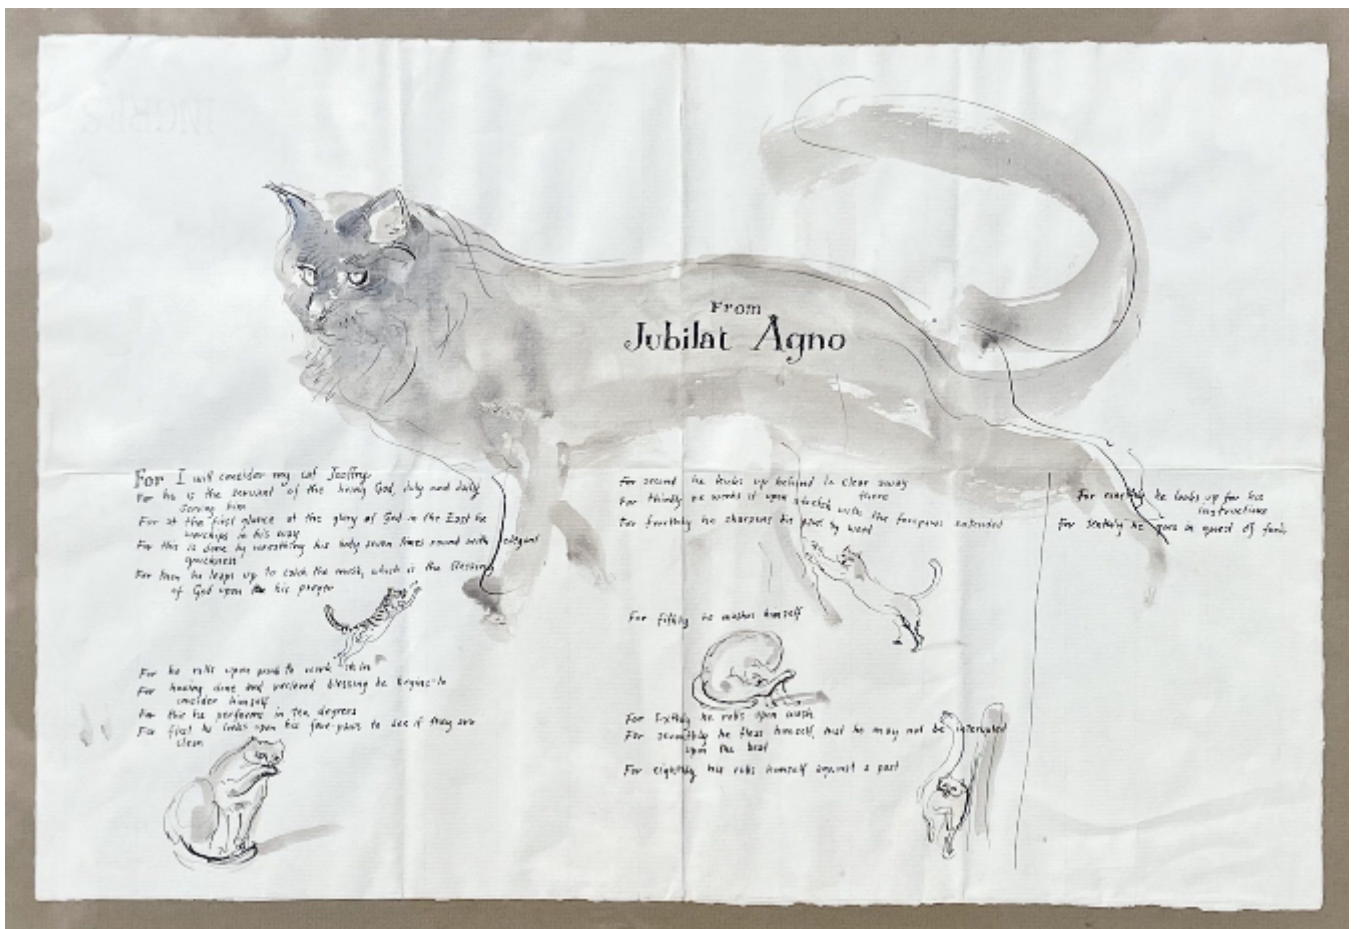 From
Jubilat Agno
For I will consider my cat Jeoffry
For he is the servant of the living God, duly and daily
serving him
For at the first glance at the glory of God in the East he
worships in his way
For this is done by wreathing his body seven times round with elegant
quickness
For then he leaps up to catch the musk, which is the blessing
of God upon his prayer
For he rolls upon prank to work it in
For having done and received blessing he begins to
consider himself
For this he performs in ten degrees
For first he looks upon his fore-paws to see if they are
clean
For second he kicks up behind to clear away
there
For thirdly he works it upon stretch with the forepaws extended
For fourthly he sharpens his paws by wood
For fifthly he washes himself
For Sixthly he rolls upon wash
For seventhly he fleas himself, that he may not be interrupted
upon the beat
For eighthly he rubs himself against a post
For he looks up for his
instructions
For tenthly he goes in quest of food